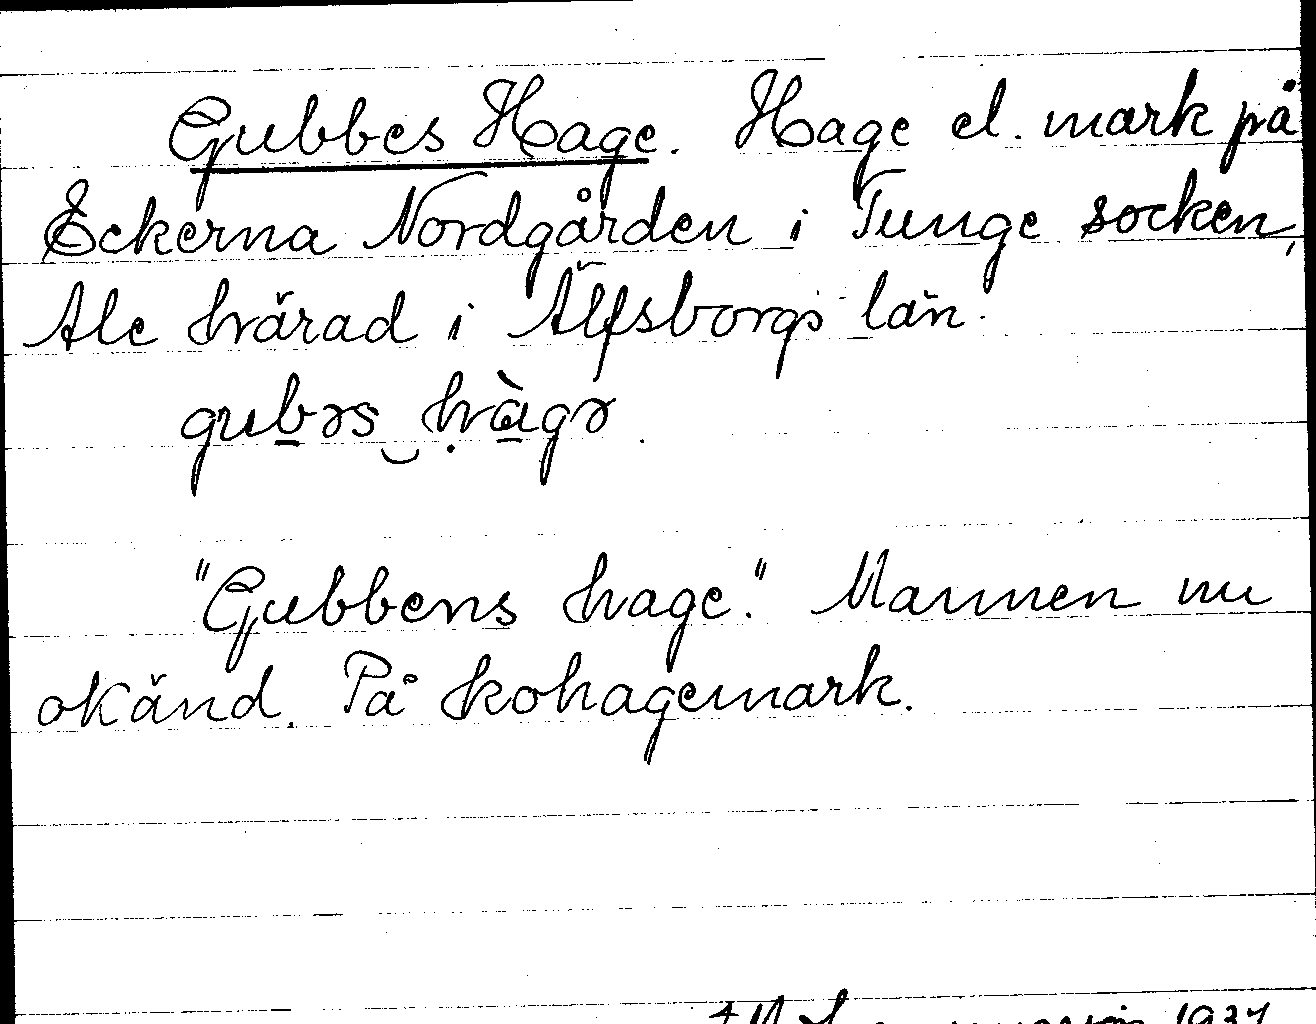 Gubbes Hage. Hage el. mark på
Eckerna Nordgården i Tunge socken,
Ale härad i Älfsborgs län.
gubəs hàgə
"Gubbens hage." Mannen nu
okänd. På kohagemark.
1937